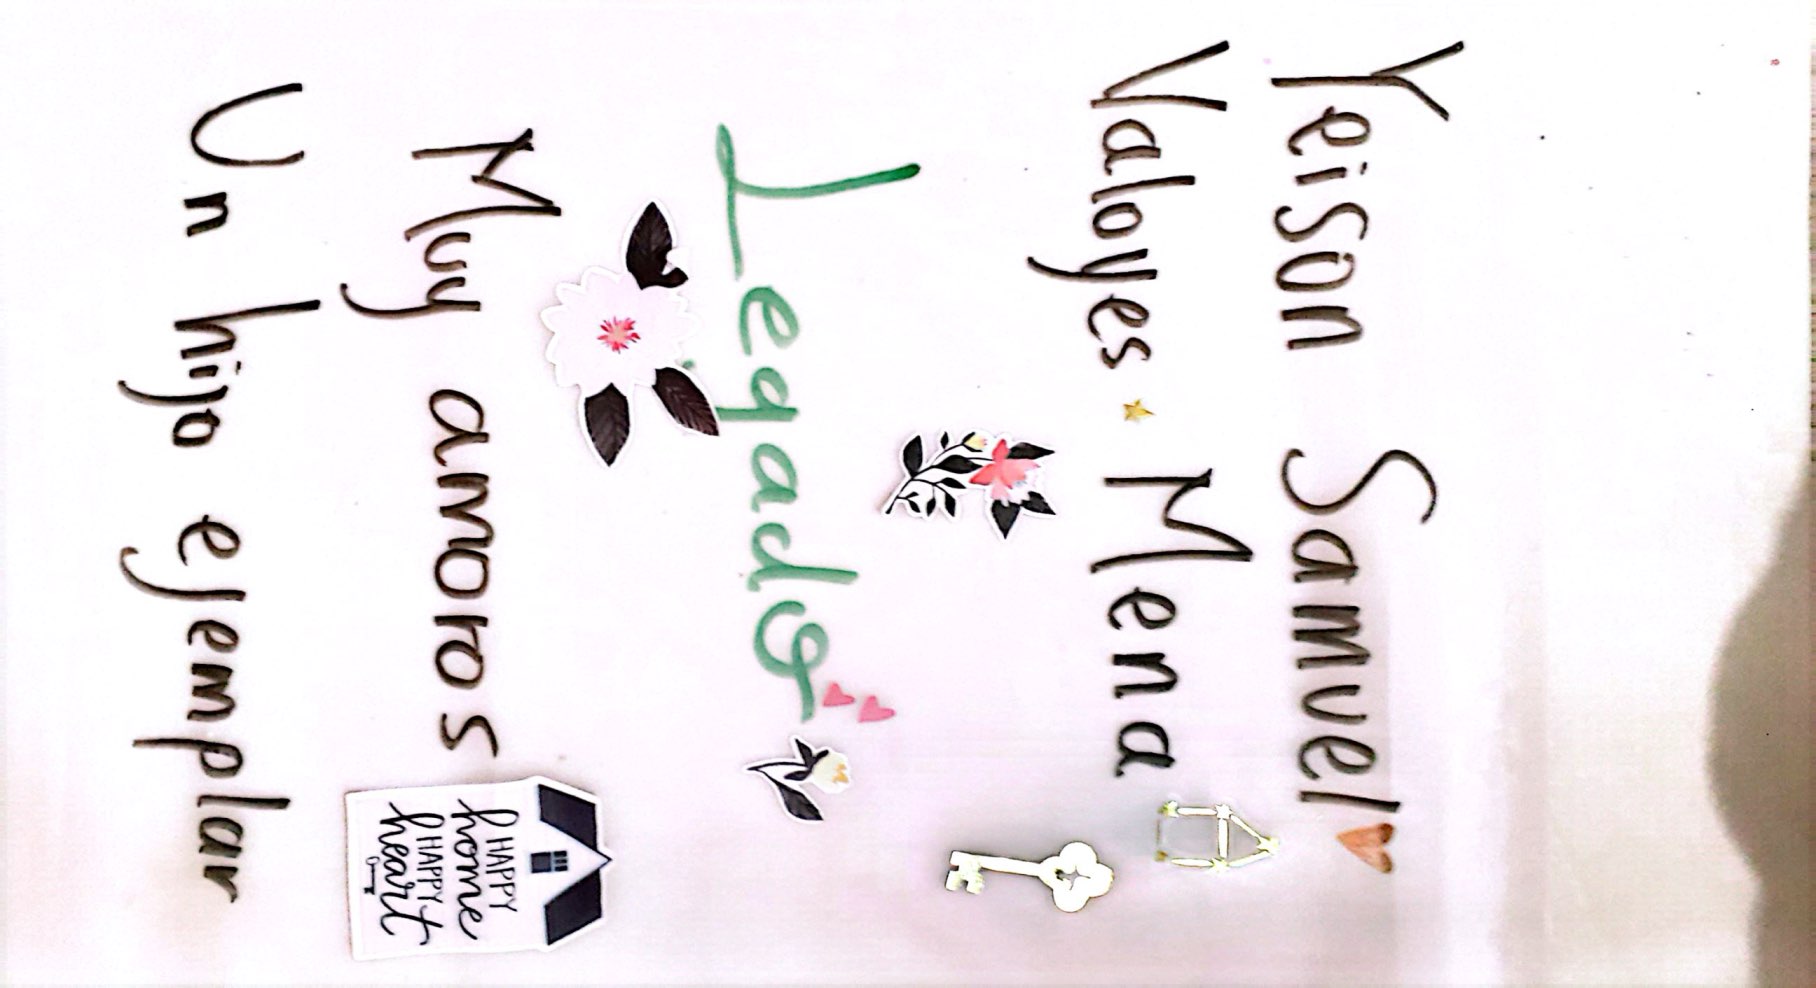 Yeison Samuel
Valoyes Mena
Legado
Muy amoros
Un hijo ejemplar
HAPPY
home
HAPPY
heart